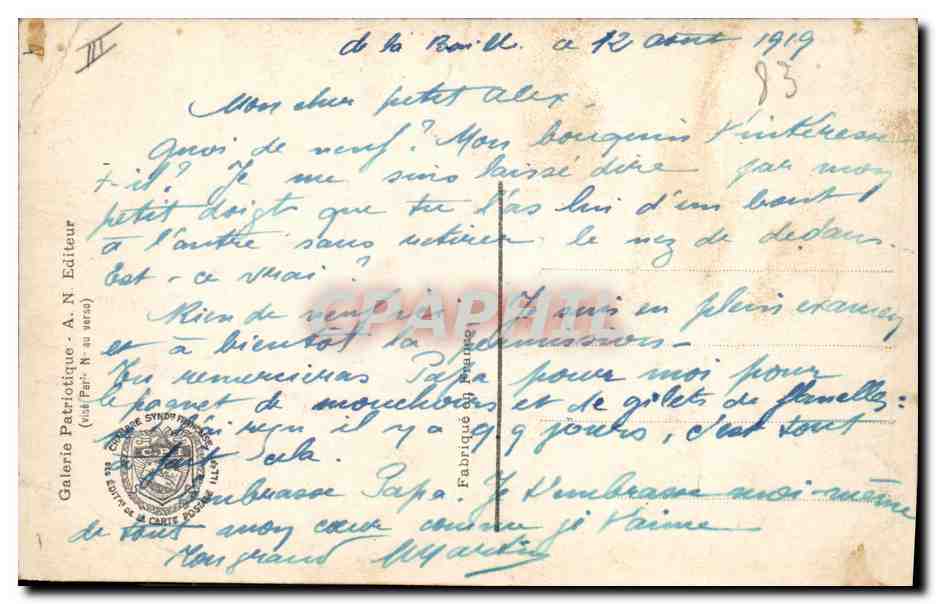 III
de la a 12 août 1919
83
Mon cher petit Alex,
Quoi de neuf? Mon bouquin t'intéresse
t-il? Je me suis laissé dire par mon
petit doigt que tu l'as lu d'un bout
à l'autre sans retirer le nez de dedans.
Est-ce vrai?
Rien de neuf ici. Je suis en plein examen
et à bientôt la permission-
Tu remercieras Papa pour moi pour
le paquet de mouchoirs et de gilets de flanelles:
reçu il y a 9 jours, c'est tout
à fait cela.
Embrasse Papa. Je t'embrasse moi-même
de tout mon cœur comme je t'aime
Ton grand
Galerie Patriotique - A. N. Editeur
(visé Paris N° au verso)
Fabriqué en France
CHAMBRE SYNDle FRANÇAISE
DES EDITrs DE LA CARTE POSTALE Ill.
CPAPHIL